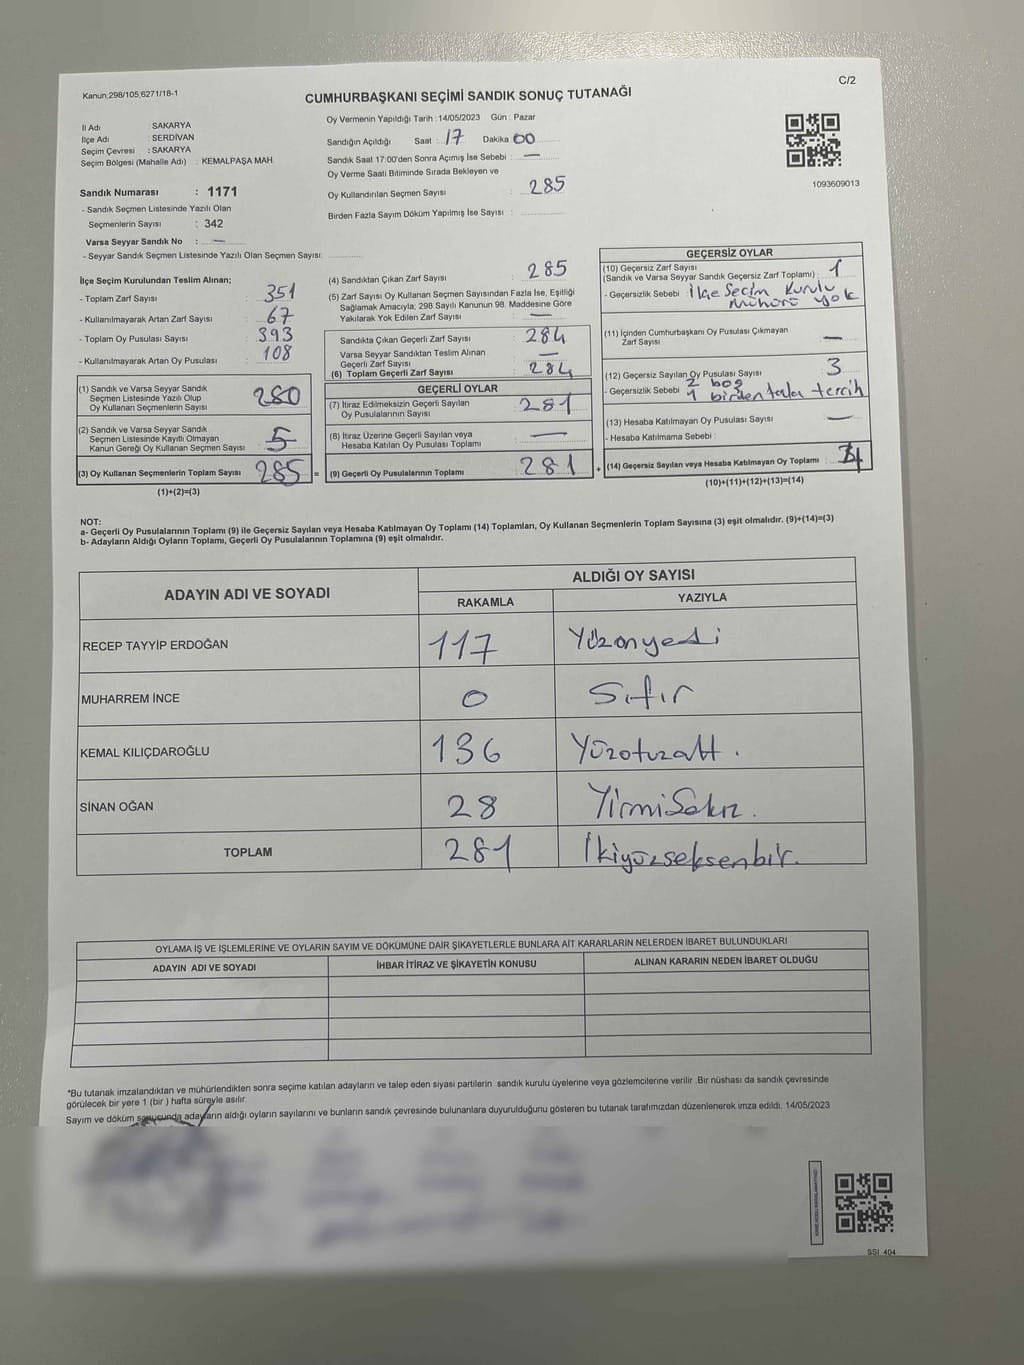 C/2
Kanun:298/105;6271/18-1
CUMHURBAŞKANI SEÇİMİ SANDIK SONUÇ TUTANAĞI
İl Adı : SAKARYA
İlçe Adı : SERDİVAN
Seçim Çevresi : SAKARYA
Seçim Bölgesi (Mahalle Adı) : KEMALPAŞA MAH.
Sandık Numarası : 1171
- Sandık Seçmen Listesinde Yazılı Olan
Seçmenlerin Sayısı : 342
Varsa Seyyar Sandık No : —
- Seyyar Sandık Seçmen Listesinde Yazılı Olan Seçmen Sayısı:
Oy Vermenin Yapıldığı Tarih : 14/05/2023 Gün : Pazar
Sandığın Açıldığı Saat : 17 Dakika 00
Sandık Saat 17:00'den Sonra Açımış İse Sebebi : —
Oy Verme Saati Bitiminde Sırada Bekleyen ve
Oy Kullandırılan Seçmen Sayısı : 285
Birden Fazla Sayım Döküm Yapılmış İse Sayısı :
1093609013
İlçe Seçim Kurulundan Teslim Alınan;
- Toplam Zarf Sayısı : 351
- Kullanılmayarak Artan Zarf Sayısı : 67
- Toplam Oy Pusulası Sayısı : 393
- Kullanılmayarak Artan Oy Pusulası : 108
(1) Sandık ve Varsa Seyyar Sandık
Seçmen Listesinde Yazılı Olup
Oy Kullanan Seçmenlerin Sayısı 280
(2) Sandık ve Varsa Seyyar Sandık
Seçmen Listesinde Kayıtlı Olmayan
Kanun Gereği Oy Kullanan Seçmen Sayısı 5
(3) Oy Kullanan Seçmenlerin Toplam Sayısı 285 =
(1)+(2)=(3)
(4) Sandıktan Çıkan Zarf Sayısı : 285
(5) Zarf Sayısı Oy Kullanan Seçmen Sayısından Fazla İse, Eşitliği
Sağlamak Amacıyla; 298 Sayılı Kanunun 98. Maddesine Göre
Yakılarak Yok Edilen Zarf Sayısı : —
Sandıkta Çıkan Geçerli Zarf Sayısı : 284
Varsa Seyyar Sandıktan Teslim Alınan
Geçerli Zarf Sayısı : —
(6) Toplam Geçerli Zarf Sayısı : 284
GEÇERLİ OYLAR
(7) İtiraz Edilmeksizin Geçerli Sayılan
Oy Pusulalarının Sayısı : 281
(8) İtiraz Üzerine Geçerli Sayılan veya
Hesaba Katılan Oy Pusulası Toplamı : —
(9) Geçerli Oy Pusulalarının Toplamı : 281 +
GEÇERSİZ OYLAR
(10) Geçersiz Zarf Sayısı
(Sandık ve Varsa Seyyar Sandık Geçersiz Zarf Toplamı) : 1
- Geçersizlik Sebebi : İlçe Seçim Kurulu
Mühürü yok
(11) İçinden Cumhurbaşkanı Oy Pusulası Çıkmayan
Zarf Sayısı : —
(12) Geçersiz Sayılan Oy Pusulası Sayısı : 3
- Geçersizlik Sebebi : 2 boş
1 birden fazla tercih
(13) Hesaba Katılmayan Oy Pusulası Sayısı : —
- Hesaba Katılmama Sebebi :
(14) Geçersiz Sayılan veya Hesaba Katılmayan Oy Toplamı : 4
(10)+(11)+(12)+(13)=(14)
NOT:
a- Geçerli Oy Pusulalarının Toplamı (9) ile Geçersiz Sayılan veya Hesaba Katılmayan Oy Toplamı (14) Toplamları, Oy Kullanan Seçmenlerin Toplam Sayısına (3) eşit olmalıdır. (9)+(14)=(3)
b- Adayların Aldığı Oyların Toplamı, Geçerli Oy Pusulalarının Toplamına (9) eşit olmalıdır.
ADAYIN ADI VE SOYADI ALDIĞI OY SAYISI
RAKAMLA YAZIYLA
RECEP TAYYİP ERDOĞAN 117 Yüzonyedi
MUHARREM İNCE 0 Sıfır
KEMAL KILIÇDAROĞLU 136 Yüzotuzaltı.
SİNAN OĞAN 28 YirmiSekiz.
TOPLAM 281 İkiyüzseksenbir.
OYLAMA İŞ VE İŞLEMLERİNE VE OYLARIN SAYIM VE DÖKÜMÜNE DAİR ŞİKAYETLERLE BUNLARA AİT KARARLARIN NELERDEN İBARET BULUNDUKLARI
ADAYIN ADI VE SOYADI İHBAR İTİRAZ VE ŞİKAYETİN KONUSU ALINAN KARARIN NEDEN İBARET OLDUĞU
*Bu tutanak imzalandıktan ve mühürlendikten sonra seçime katılan adayların ve talep eden siyasi partilerin sandık kurulu üyelerine veya gözlemcilerine verilir .Bir nüshası da sandık çevresinde
görülecek bir yere 1 (bir ) hafta süreyle asılır.
Sayım ve döküm sonucunda adayların aldığı oyların sayılarını ve bunların sandık çevresinde bulunanlara duyurulduğunu gösteren bu tutanak tarafımızdan düzenlenerek imza edildi. 14/05/2023